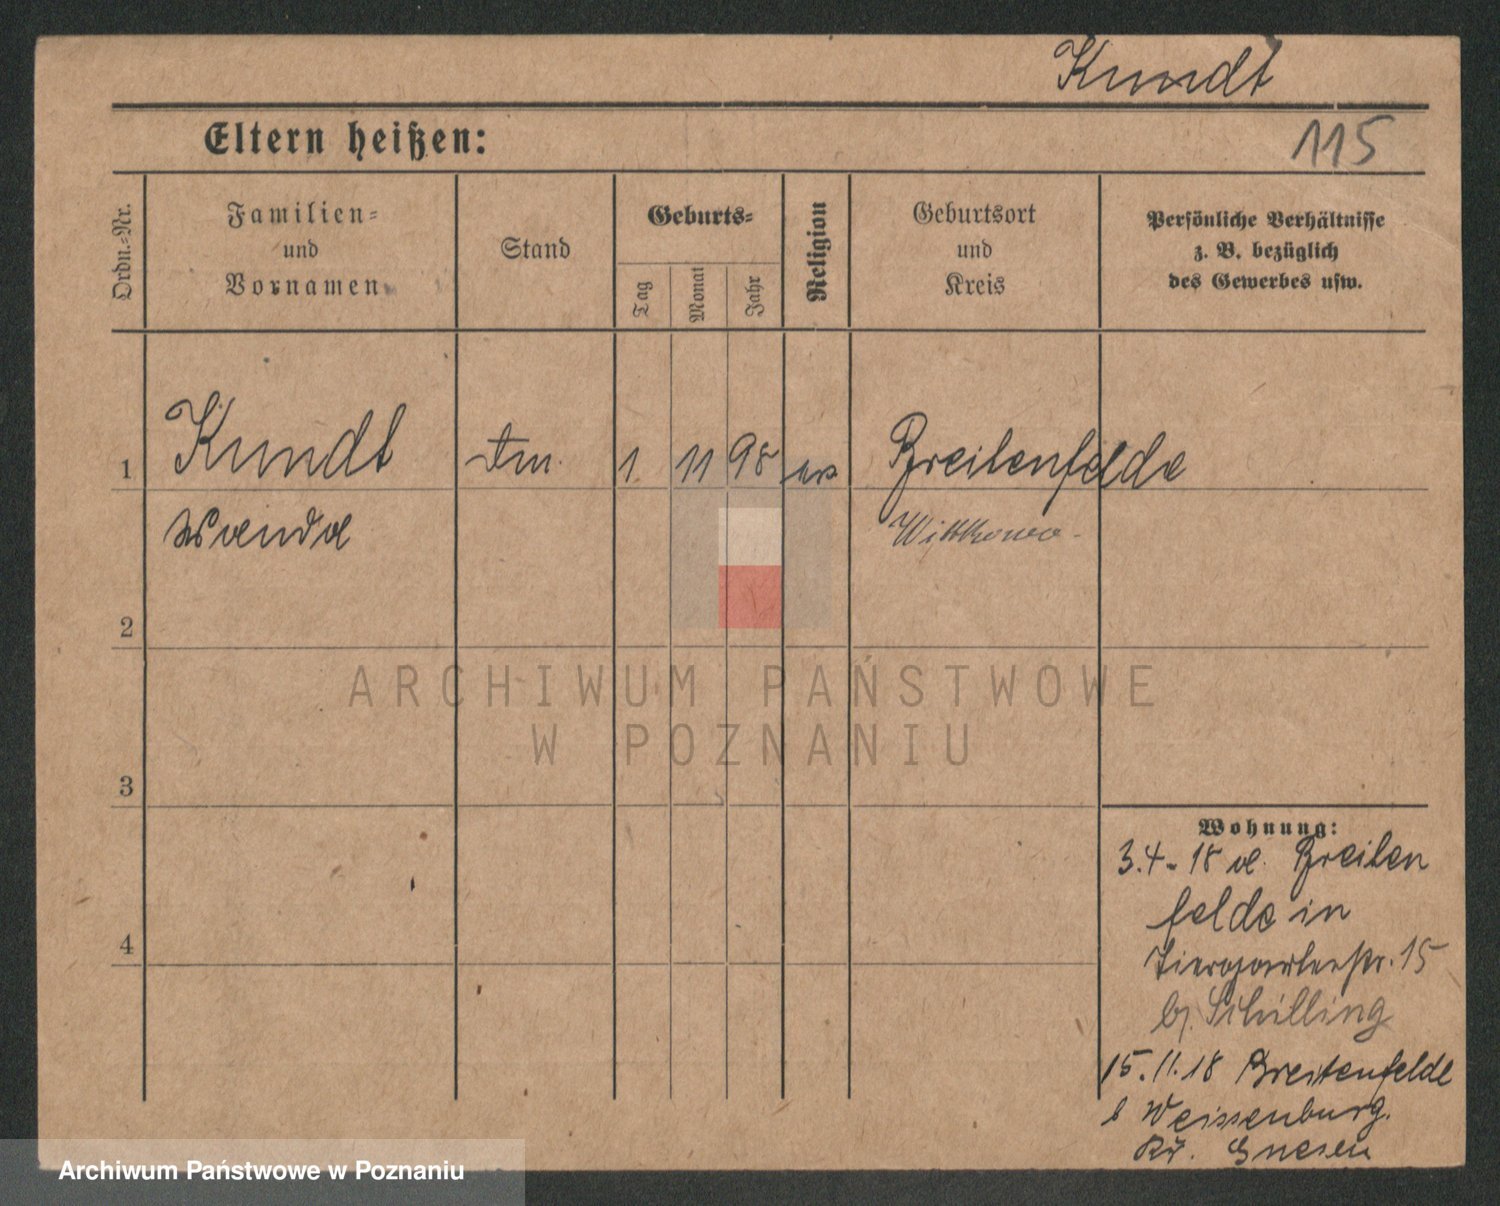 Kundt
Eltern heißen:
115
Ordn.-Nr.
Familien-
und
Vornamen
Stand
Geburts-
Tag
Monat
Jahr
Religion
Geburtsort
und
Kreis
Persönliche Verhältnisse
z. B. bezüglich
des Gewerbes usw.
1 Kundt 1 11 98 Breitenfelde
Wanda Wittkowo
2
3
4
ARCHIWUM PAŃSTWOWE
W POZNANIU
Wohnung:
3.4-18 a. Breiten
felde in
Tiergartenstr. 15
b/ Schilling
15.11.18 Breitenfelde
b Weissenburg.
Kr. Gnesen
Archiwum Państwowe w Poznaniu